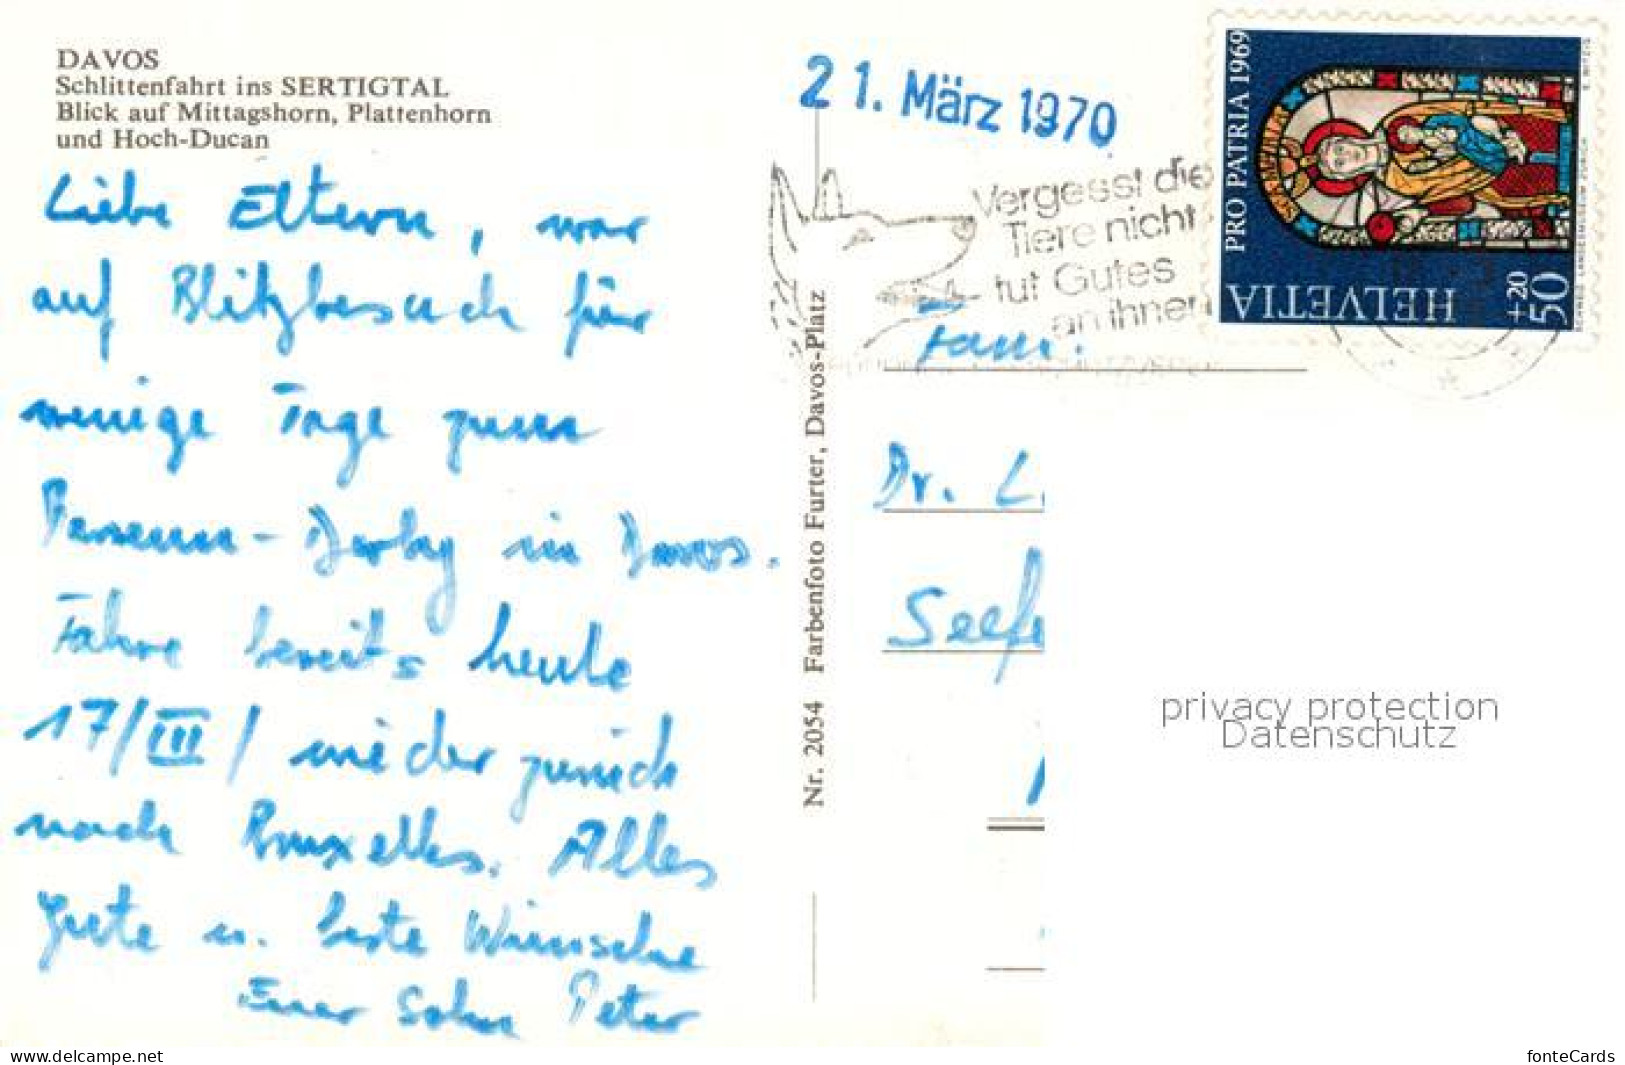 DAVOS
Schlittenfahrt ins SERTIGTAL
Blick auf Mittagshorn, Plattenhorn
und Hoch-Ducan
Liebe Eltern, war
auf Blitzbesuch für
wenige Tage zum
Parsenn-Derby in Davos.
Fahre bereits heute
17/III/ wieder zurück
nach Bruxelles. Alles
Gute u. beste Wünsche
Euer Sohn Peter
Nr. 2054 Farbenfoto Furter, Davos-Platz
21. März 1970
Vergesst die
Tiere nicht
tut Gutes
an ihnen
PRO PATRIA 1969
HELVETIA
+20
50
SCHWEIZ. LANDESMUSEUM ZÜRICH
Fam.
Dr. L.
Seef
privacy protection
Datenschutz
www.delcampe.net
fonteCards